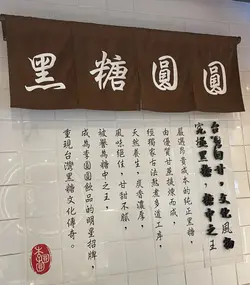 黑糖圓圓
台灣白甘，文化風物
究極黑糖，糖中之王
嚴選昂貴成本的純正黑糖，
由優質甘蔗提煉而成，
經獨家古法熬煮多道工序，
天然養生，炭香濃厚，
風味絕佳，甘甜不膩，
被譽為糖中之王，
成為李圓圓飲品的明星招牌，
重現台灣黑糖文化傳奇。